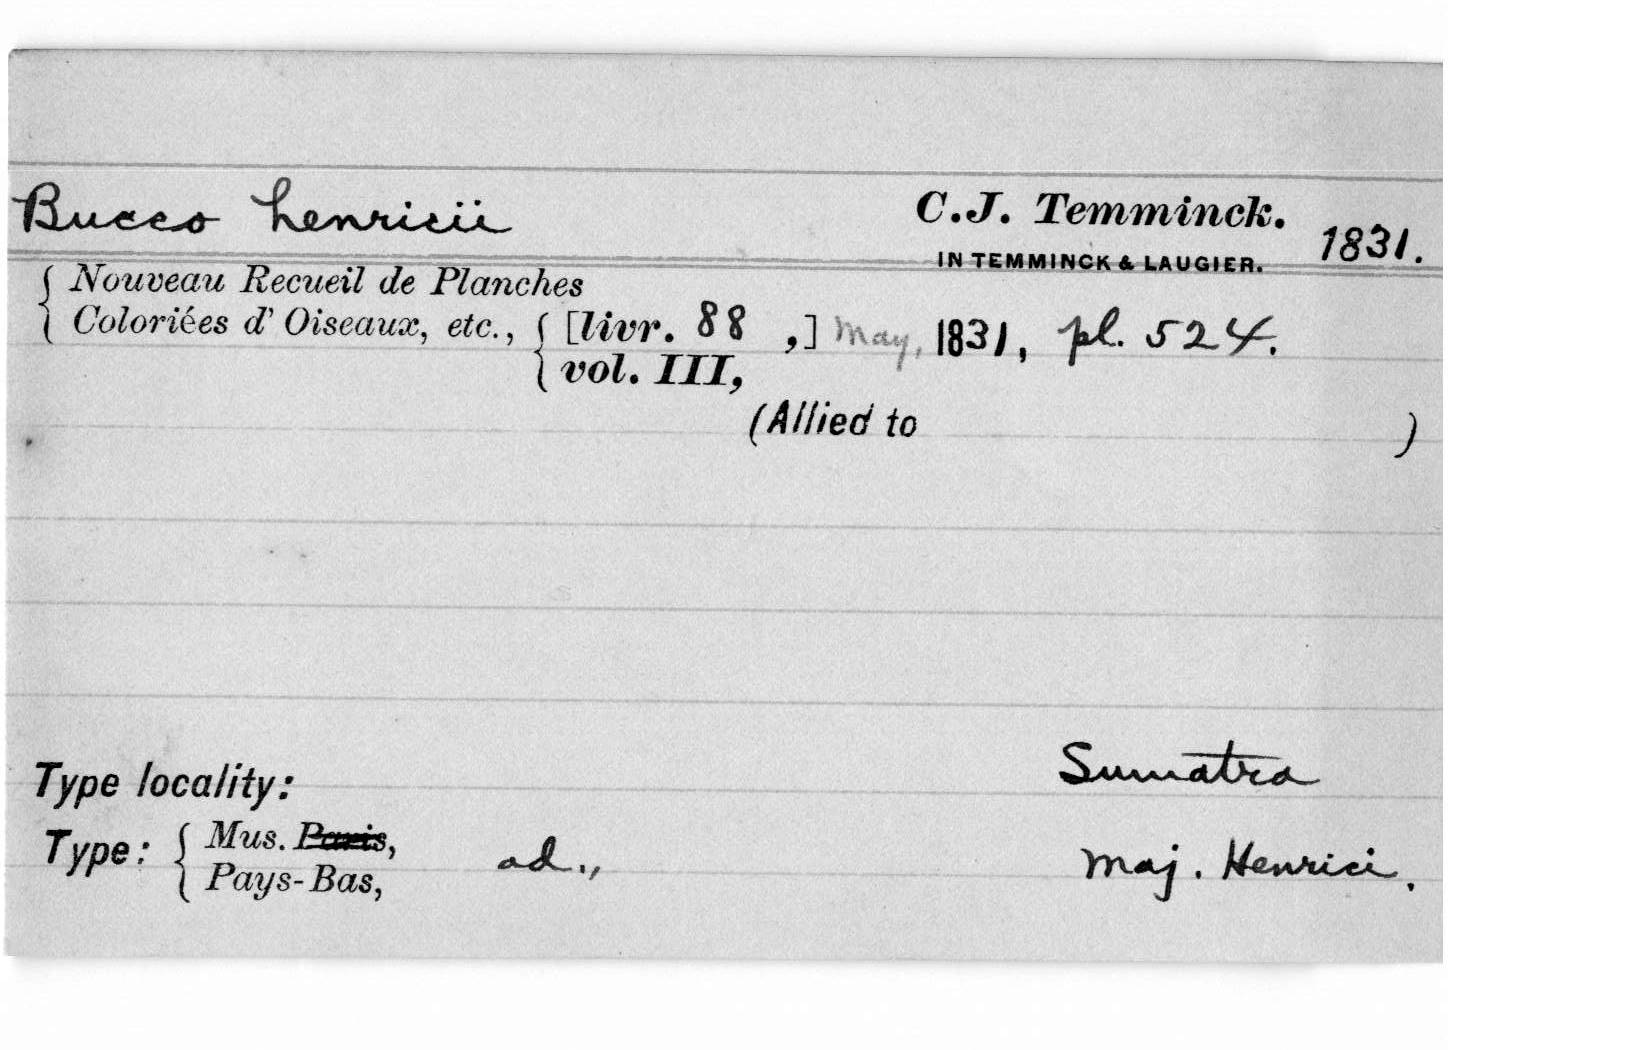 Bucco henricii C.J. Temminck. 1831.
IN TEMMINCK & LAUGIER.
Nouveau Recueil de Planches
Coloriées d' Oiseaux, etc., [livr. 88 ,] May, 1831, pl. 524.
vol. III,
(Allied to )
Type locality: Sumatra
Type: Mus. Paris, ad., Maj. Henrici.
Pays-Bas,